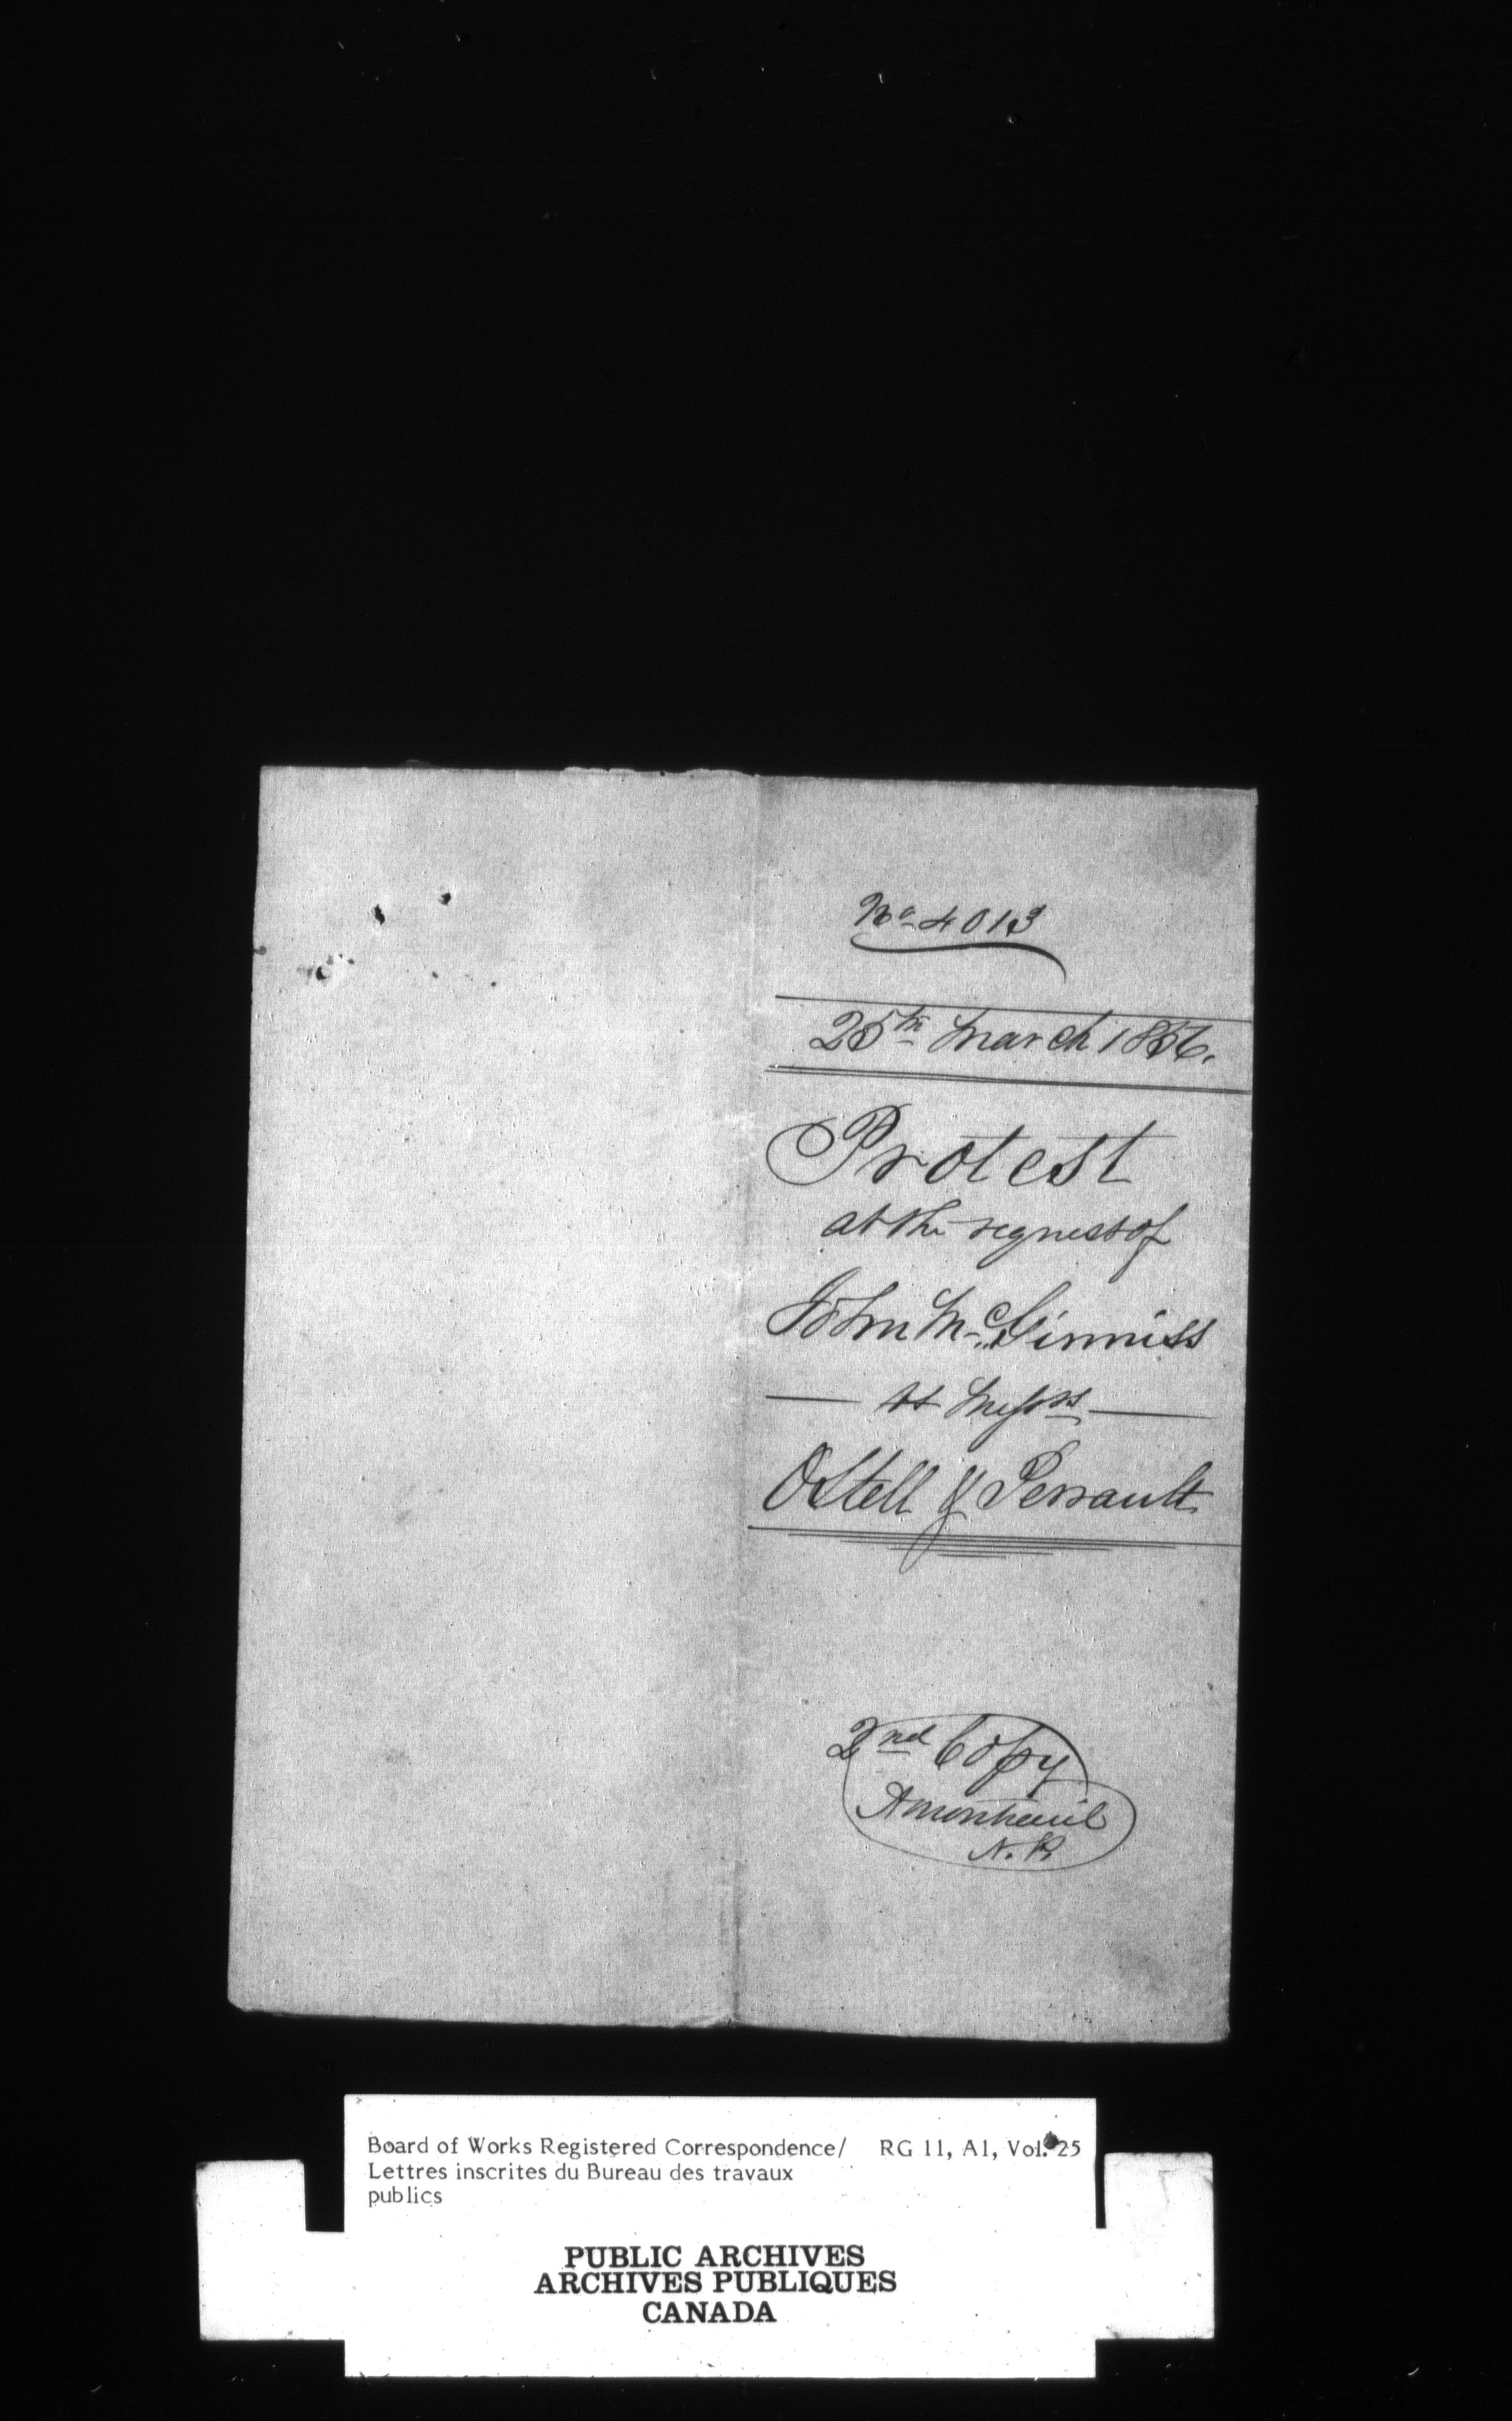 No 4013
25th March 1856.
Protest
at the request of
John McGinniss
vs Messrs
Ostell & Perrault
2nd Copy
N. P.
Board of Works Registered Correspondence/ RG 11, A1, Vol. 25
Lettres inscrites du Bureau des travaux
publics
PUBLIC ARCHIVES
ARCHIVES PUBLIQUES
CANADA